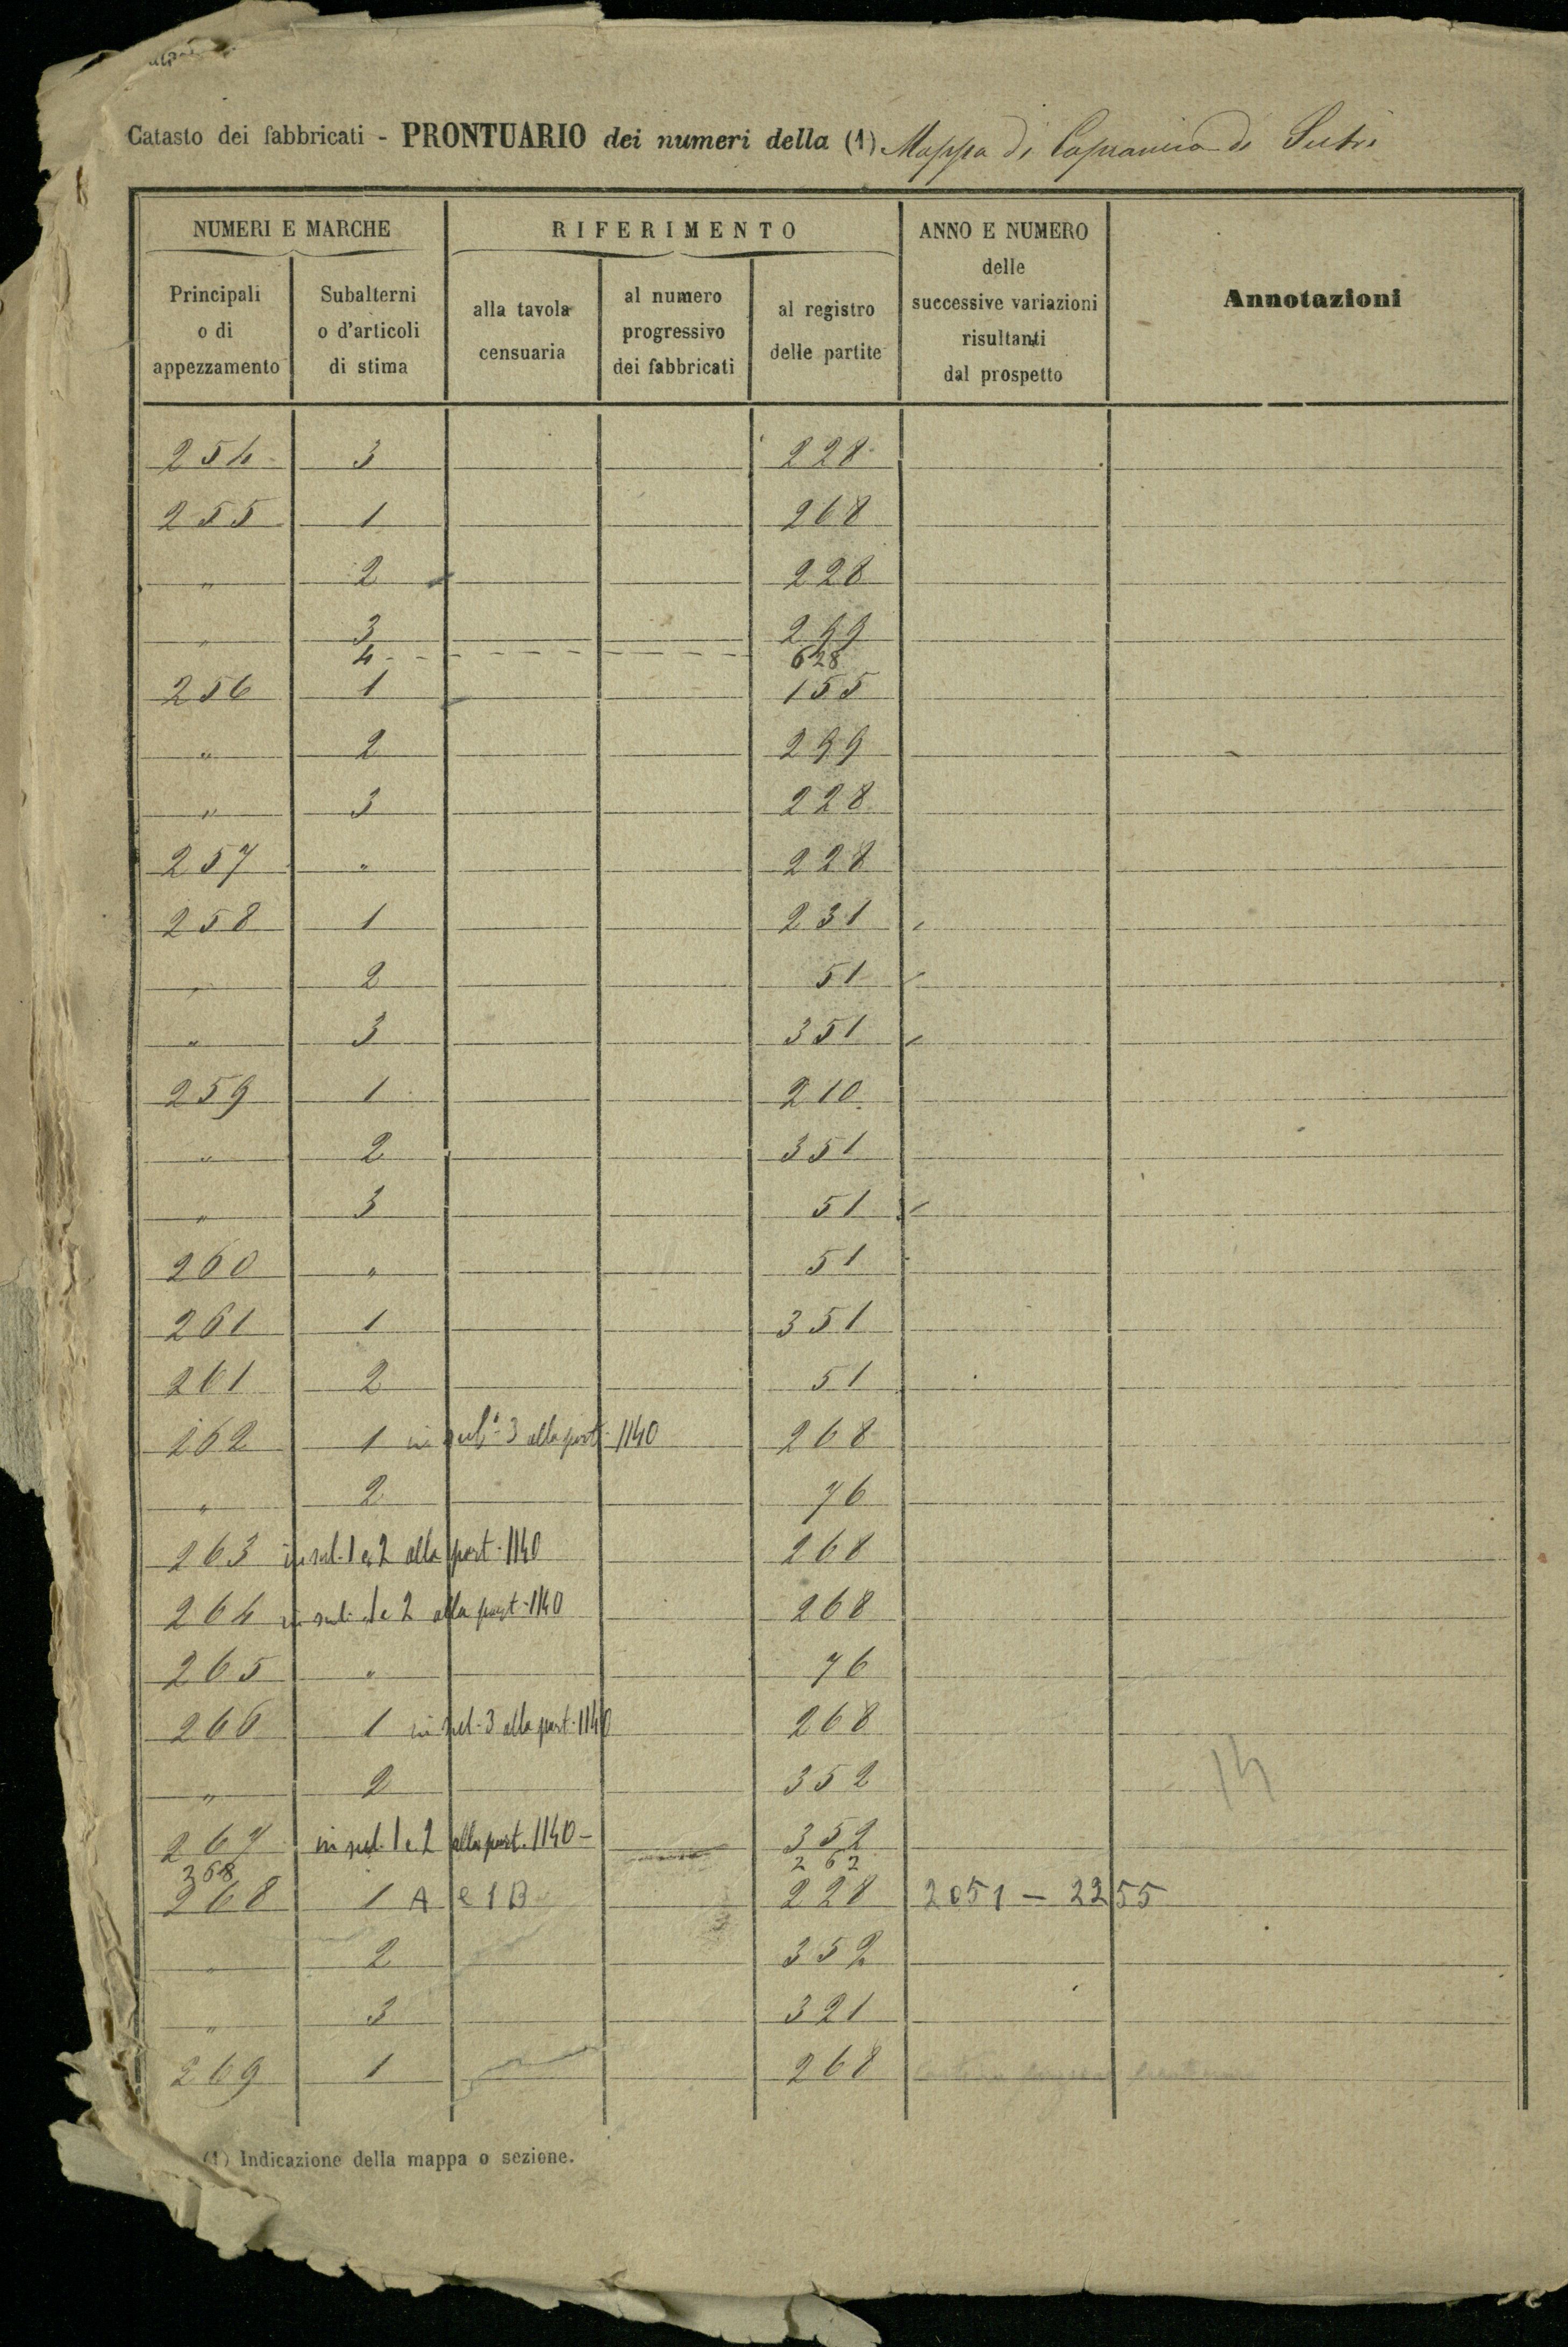 Catasto dei fabbricati - PRONTUARIO dei numeri della (1) Mappa di Capranica di Sutri
NUMERI E MARCHE RIFERIMENTO ANNO E NUMERO delle successive variazioni risultanti dal prospetto Annotazioni
Principali o di appezzamento Subalterni o d'articoli di stima alla tavola censuaria al numero progressivo dei fabbricati al registro delle partite
254 3 228
255 1 268
" 2 228
" 3 299
4 628
256 1 155
" 2 299
" 3 228
257 " 228
258 1 231
" 2 51
" 3 351
259 1 210
" 2 351
" 3 51
260 " 51
261 1 351
261 2 51
262 1 in sub. 3 alla part. 1140 268
" 2 76
263 in sub. 1 e 2 alla part. 1140 268
264 in sub. 1 e 2 alla part. 1140 268
265 " 76
266 1 in sub. 3 alla part. 1140 268
" 2 352
14
267 in sub. 1 e 2 alla part. 1140 - 352
268 262
268 1 A e 1 B 228 2051 - 2255
" 2 352
" 3 321
269 1 268
(1) Indicazione della mappa o sezione.